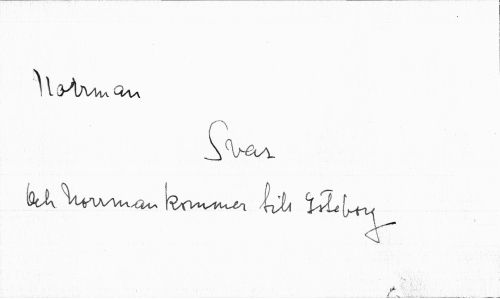 Norrman
Svar
Och Norrman kommer till Göteborg